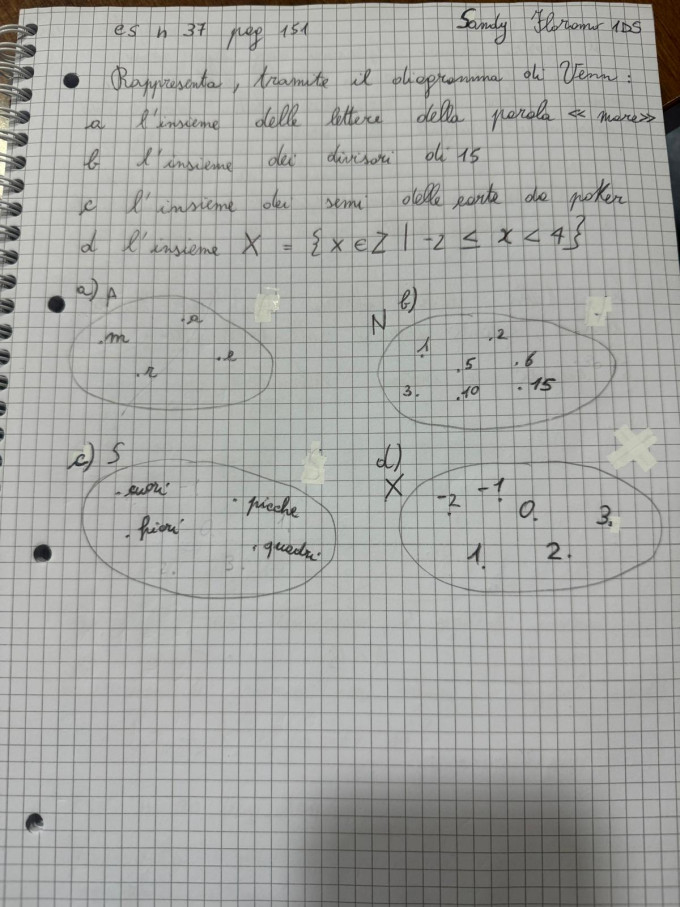 es n 37 pag 151
Sandy 1DS
Rappresenta, tramite il diagramma di Venn:
a l'insieme delle lettere della parola « mare»
b l'insieme dei divisori di 15
c l'insieme dei semi delle carte da poker
d l'insieme X = {x ∈ Z | -2 ≤ x < 4}
a) A
.a
.m
.e
.r
b)
N
1 .2
.5 .6
3. .10 .15
c) S
.cuori
.picche
.fiori
.quadri
d)
X
-2 -1 0. 3.
1. 2.